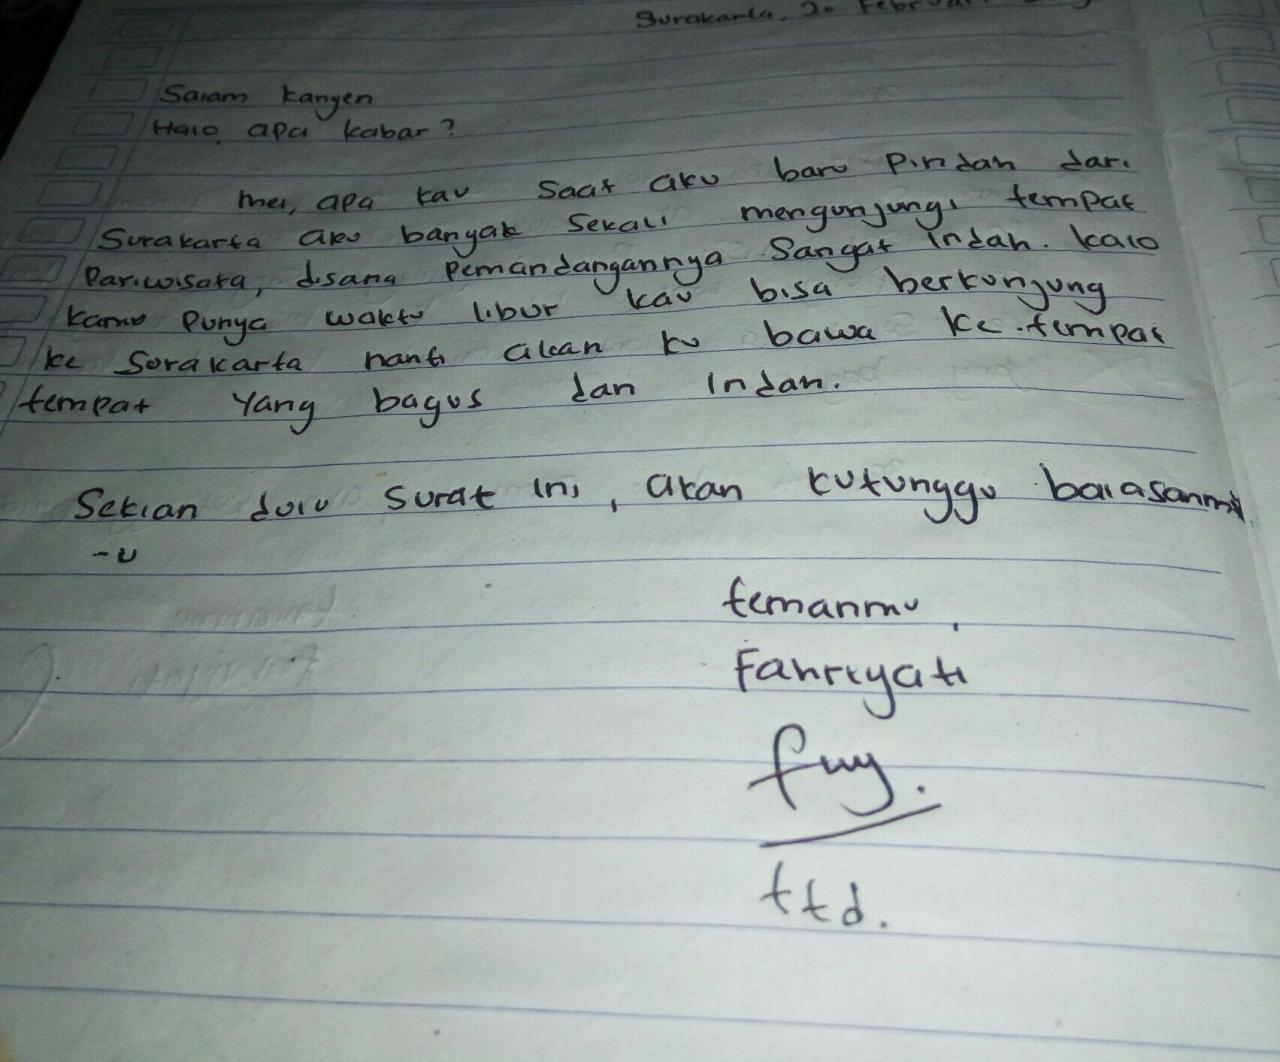 Surakarta, 20 Februari
Salam kangen
Halo, apa kabar?
mei, apa kau saat aku baru Pindah dari
Surakarta aku banyak Sekali mengunjungi tempat
Pariwisata, disana Pemandangannya Sangat Indah. kalo
kamu Punya waktu libur kau bisa berkunjung
ke Surakarta nanti akan ku bawa ke tempat
tempat Yang bagus dan Indah.
Sekian dulu Surat Ini, akan kutunggu balasanm
-u
temanmu,
Fahriyati
ttd.